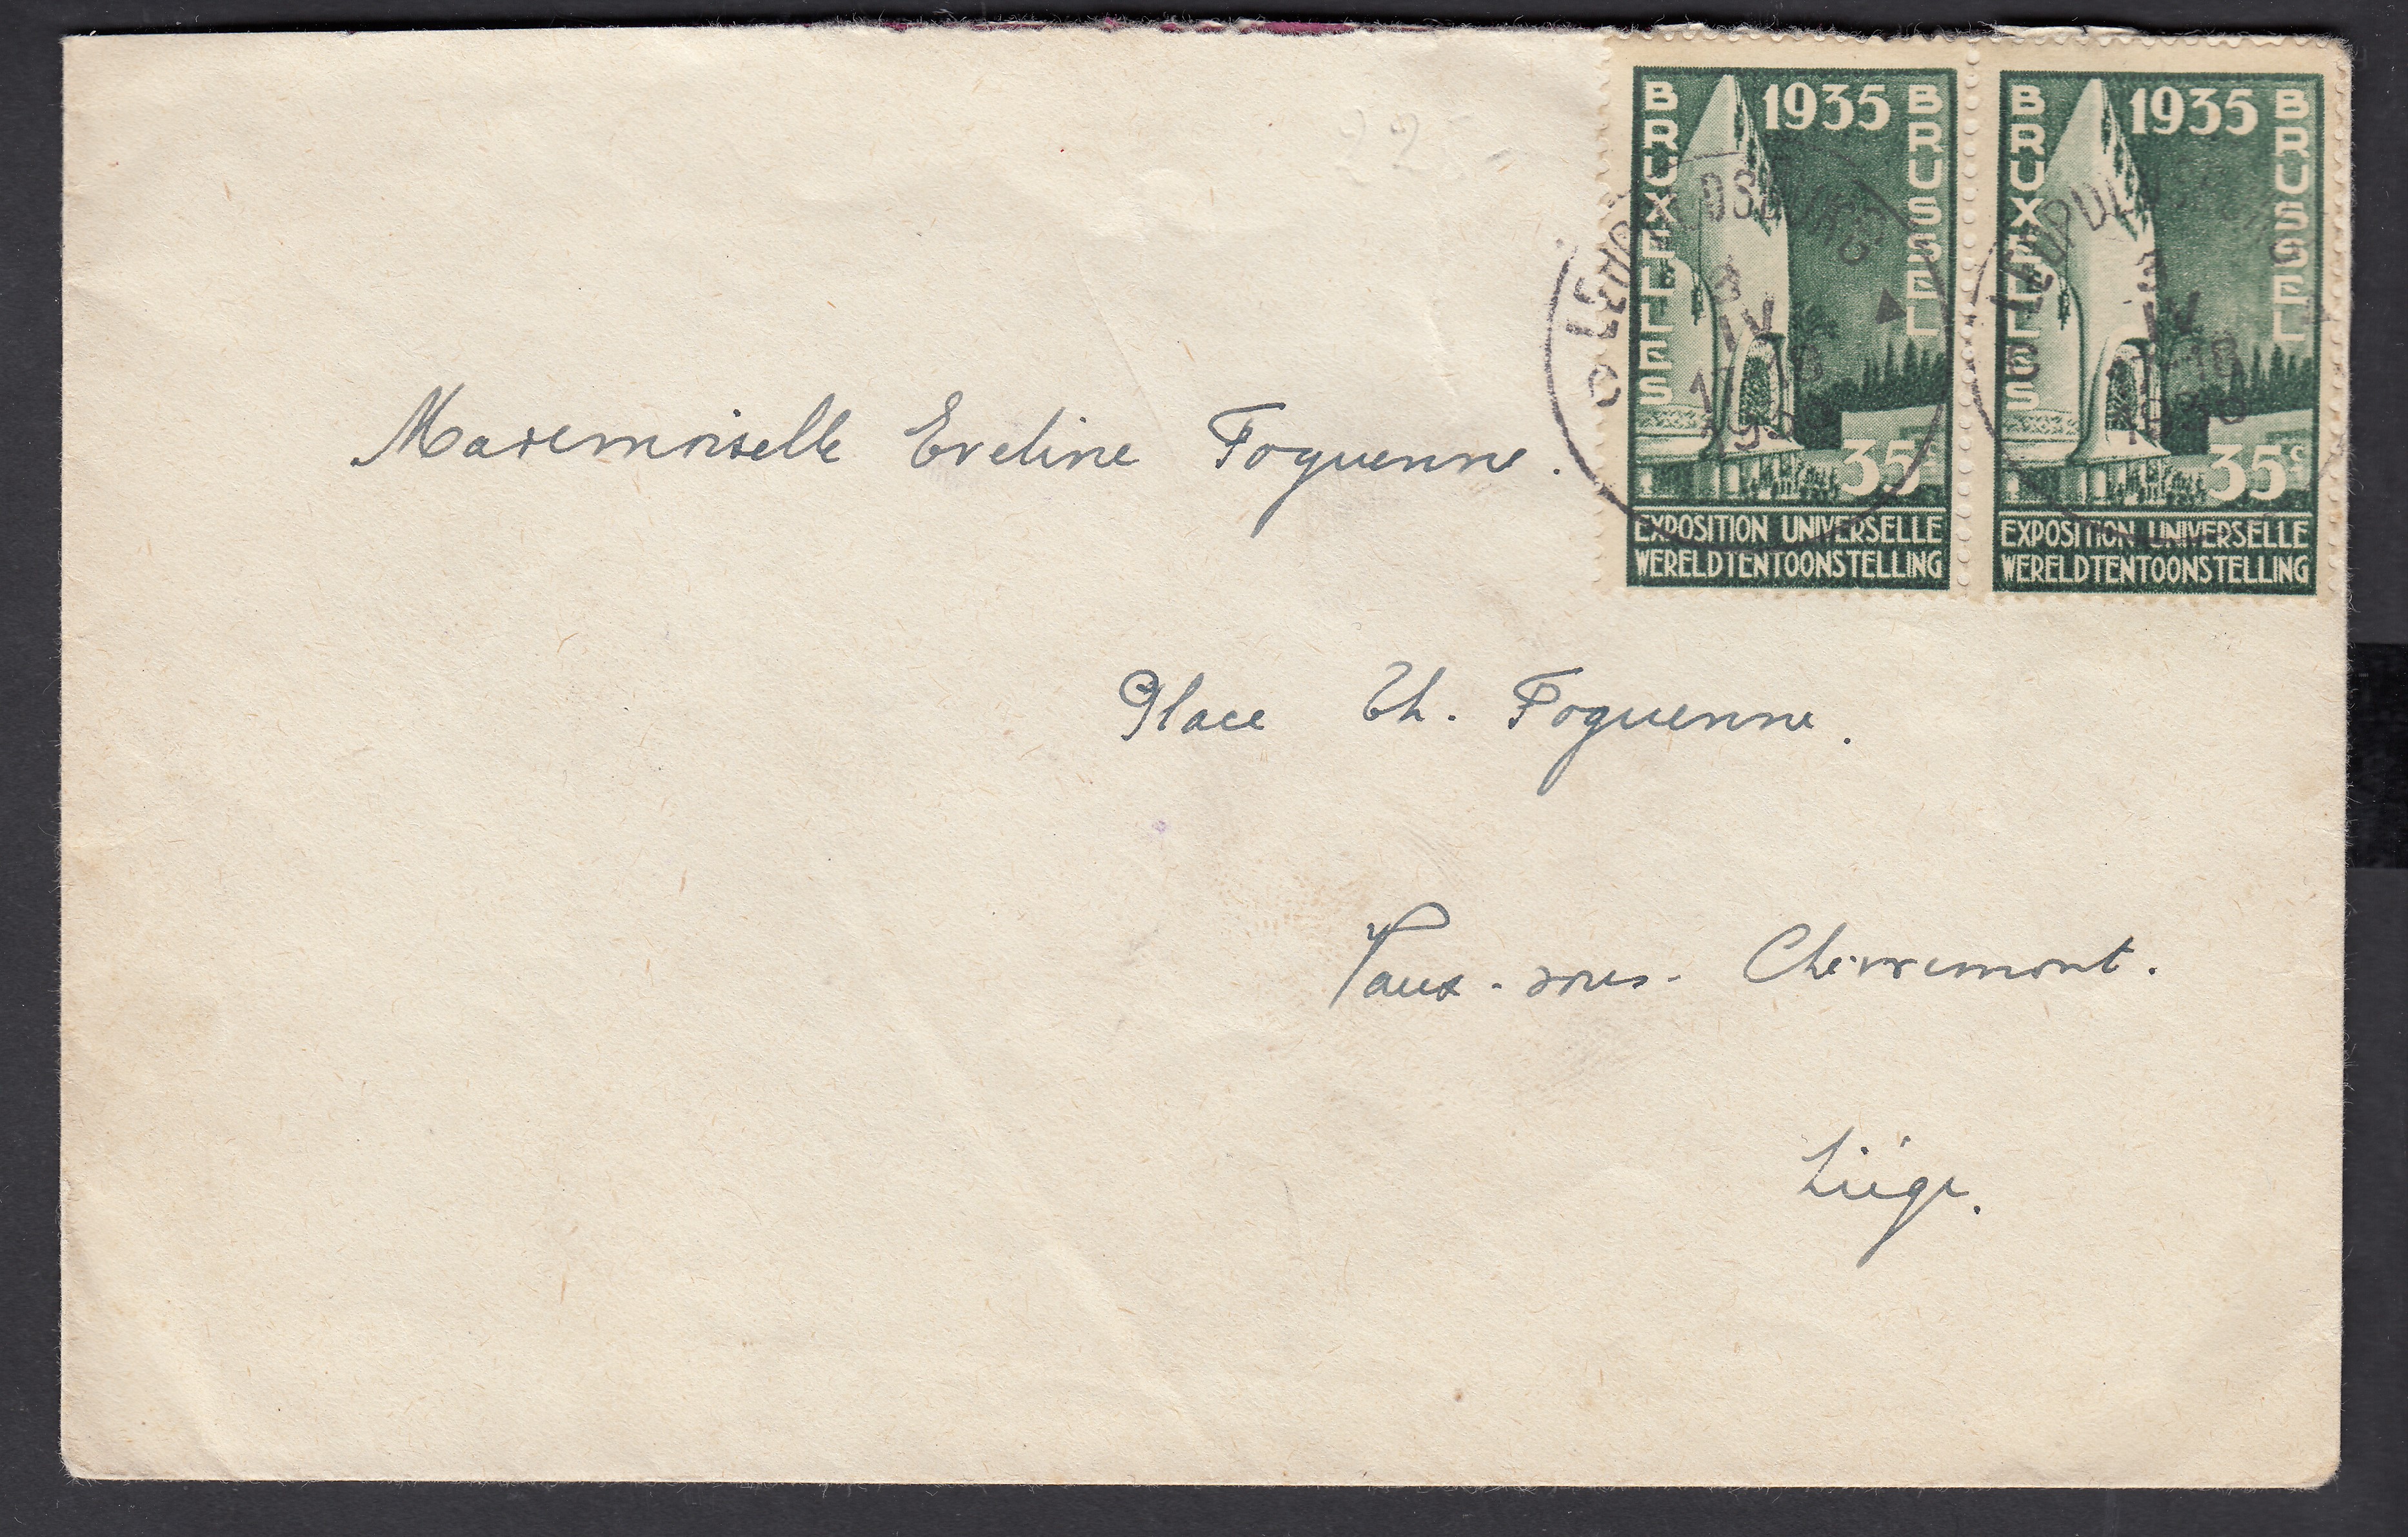 225-
1935
BRUXELLES
BRUSSEL
35c
EXPOSITION UNIVERSELLE
WERELDTENTOONSTELLING
1935
BRUXELLES
BRUSSEL
35c
EXPOSITION UNIVERSELLE
WERELDTENTOONSTELLING
LEOPOLDSBURG
IV
17-18
LEOPOLDSBURG
IV
17-18
Mademoiselle Eveline Foguenne.
Place Th. Foguenne.
Vaux-sous-Chèvremont.
Liége.